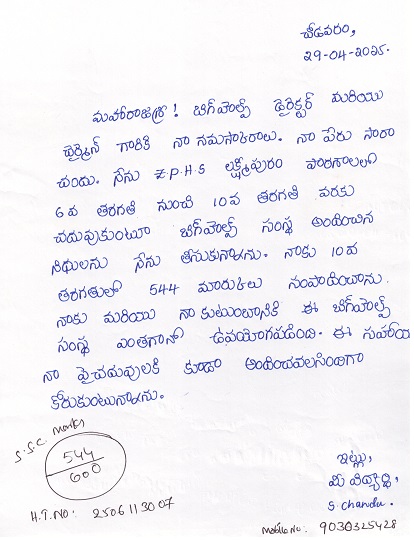 చీడవరం,
29-04-2025.
మహారాజశ్రీ! బిగ్‌హెల్ప్ డైరెక్టర్ మరియు
ఛైర్మెన్ గారికి నా నమస్కారాలు. నా పేరు సారా
చందు. నేను Z.P.H.S లక్ష్మీపురం పాఠశాలలో
6 వ తరగతి నుంచి 10వ తరగతి వరకు
చదువుకుంటూ బిగ్‌హెల్ప్ సంస్థ అందించిన
నిధులను నేను తీసుకున్నాను. నాకు 10వ
తరగతులో 544 మార్కులు సంపాదించాను.
నాకు మరియు నా కుటుంబానికి ఈ బిగ్‌హెల్ప్
సంస్థ ఎంతగానో ఉపయోగపడింది. ఈ సహాయం
నా పైచదువులకి కూడా అందించవలసిందిగా
కోరుకుంటున్నాను.
S.S.C. Marks
544
600
H.T.NO: 2506113007
ఇట్లు,
మీ విద్యార్థి,
S. chandu.
Mobile No: 9030325428